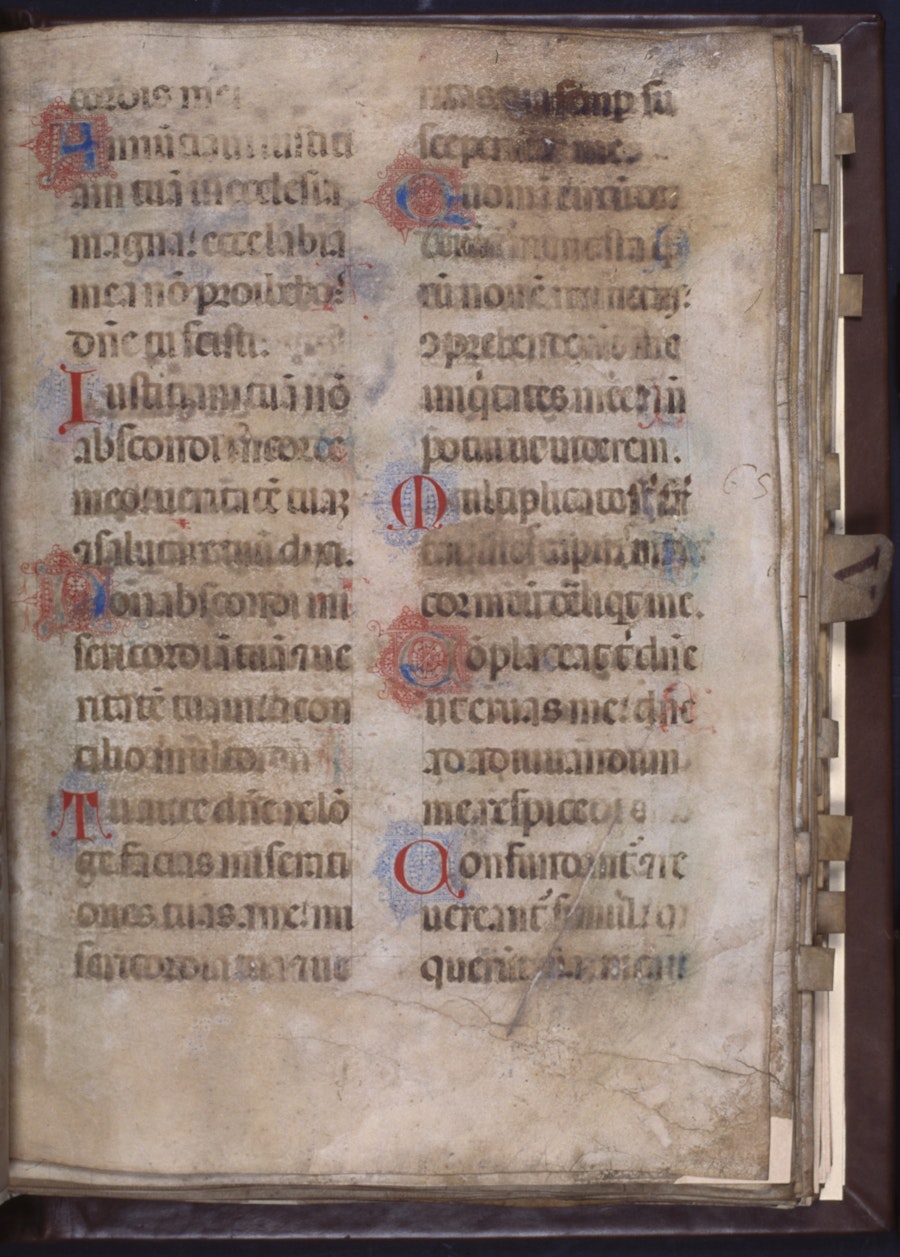 cordis mei
Annūciaui iustici
am tuā in ecclesia
magna: ecce labia
mea nō prohibebo:
dn̄e tu scisti.
Iusticiam tuā nō
abscondi in corde
meo: ueritatē tuaʒ
⁊ salutare tuū dixi.
Non abscondi mi
sericordiā tuā ⁊ ue
ritatē tuam: a con
cilio multo
Tu autē dn̄e ne lō
ge facias miserati
ones tuas a me: mi
sericordia tua ⁊ ue
ritas tua semp su
sceperunt me.
Quoniā circūde
derūt
rū nō ē numerꝰ:
ↄprehenderūt me
iniq̄tates mee: ⁊ nō
potui ut uiderem.
Multiplicate sūt
capitis mei:
cor meū de
Cōplaceat t̄ dn̄e
ut eruas me: dn̄e
ad adiuuandum
me respice
Confundant᷑ ⁊ re
uereant᷑ simul: q
querūt aīam meā
65